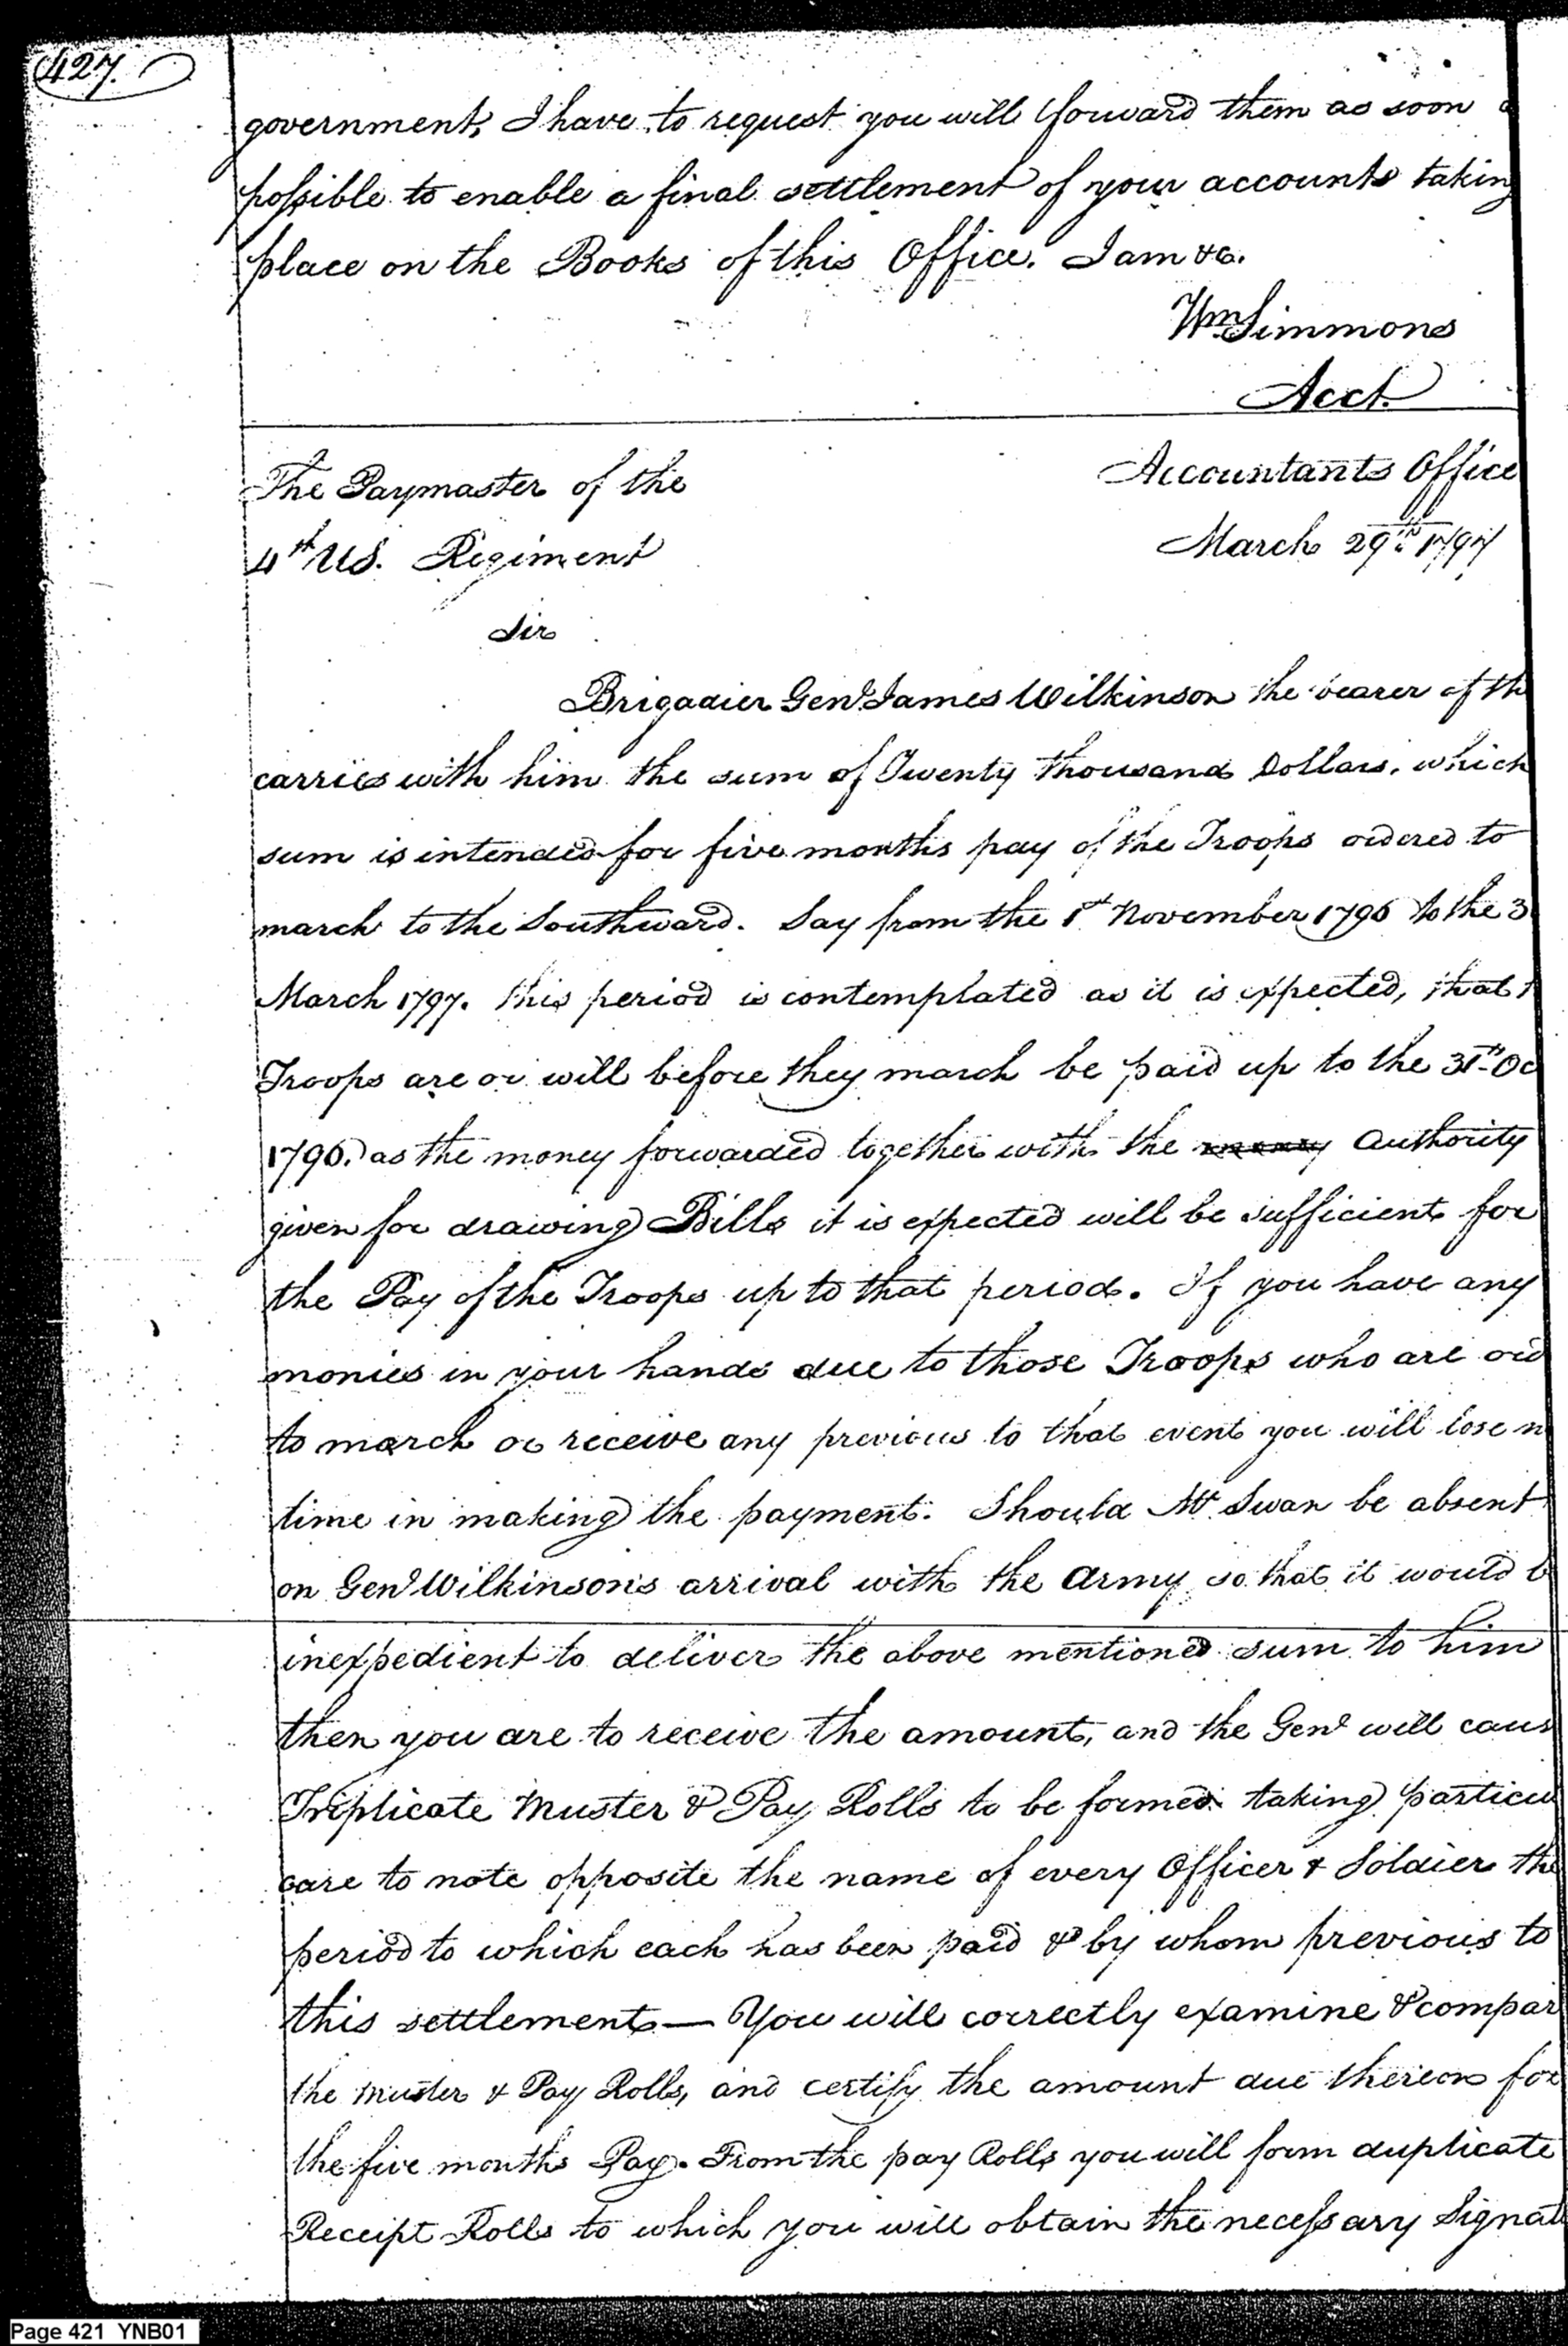 427.
government, I have to request you will forward them as soon a
possible to enable a final settlement of your accounts taking
place on the Books of this Office. I am &c.
Wm Simmons
Acct.
The Paymaster of the
4th US. Regiment
Accountants Office
March 29th 1797
Sir
Brigadier Genl James Wilkinson the bearer of th
carries with him the sum of Twenty thousand Dollars, which
sum is intended for five months pay of the Troops ordered to
march to the Southward. Say from the 1st November 1796 to the 3
March 1797. this period is contemplated as it is expected, that t
Troops are or will before they march be paid up to the 31st Oc
1796. as the money forwarded together with the money Authority
given for drawing Bills it is expected will be sufficient for
the Pay of the Troops up to that period. If you have any
monies in your hands due to those Troops who are ord
to march or receive any previous to that event you will lose n
time in making the payment. Should Mr Swan be absent
on Genl Wilkinson's arrival with the Army so that it would b
inexpedient to deliver the above mentioned sum to him
then you are to receive the amount, and the Genl will caus
Triplicate Muster & Pay Rolls to be formed taking particu
care to note opposite the name of every Officer & Soldier the
period to which each has been paid & by whom previous to
this settlement — You will correctly examine & compar
the Muster & Pay Rolls, and certify the amount due thereon for
the five months Pay. From the pay Rolls you will form duplicate
Receipt Rolls to which you will obtain the necessary Signat
Page 421 YNB01